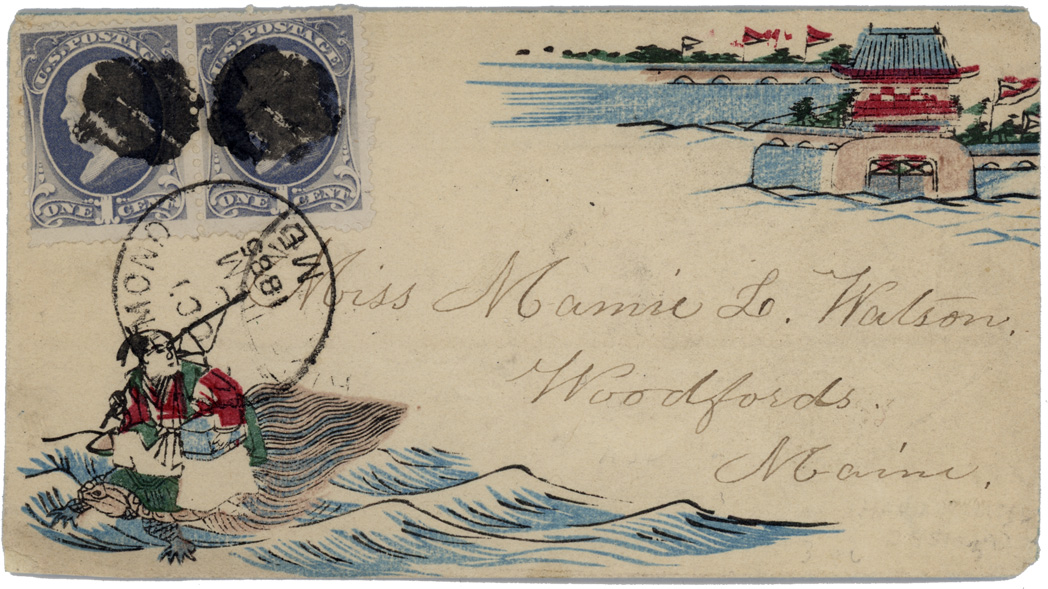 U.S. POSTAGE
ONE 1 CENT
U.S. POSTAGE
ONE CENT
MONO
ME
1885
Miss Mamie L. Watson.
Woodfords.
Maine.